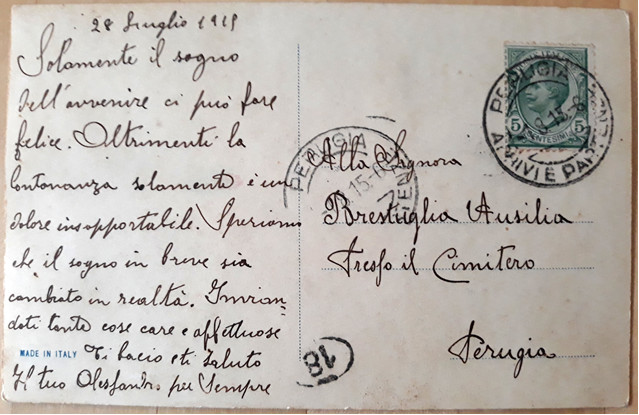 28 Luglio 1915
Solamente il sogno
dell'avvenire ci può fare
felice. Altrimenti la
lontonanza solamente è un
dolore insopportabile. Speriamo
che il sogno in breve sia
cambiato in realtà. Invian
doti tante cose care e affettuose
Ti bacio e ti saluto
Il tuo Alessandro per sempre
MADE IN ITALY
Alla Signora
Brestuglia Ausilia
Presso il Cimitero
Perugia
PERUGIA
ARRIVI E PARTENZE
5 5
CENTESIMI
PERUGIA
15
18